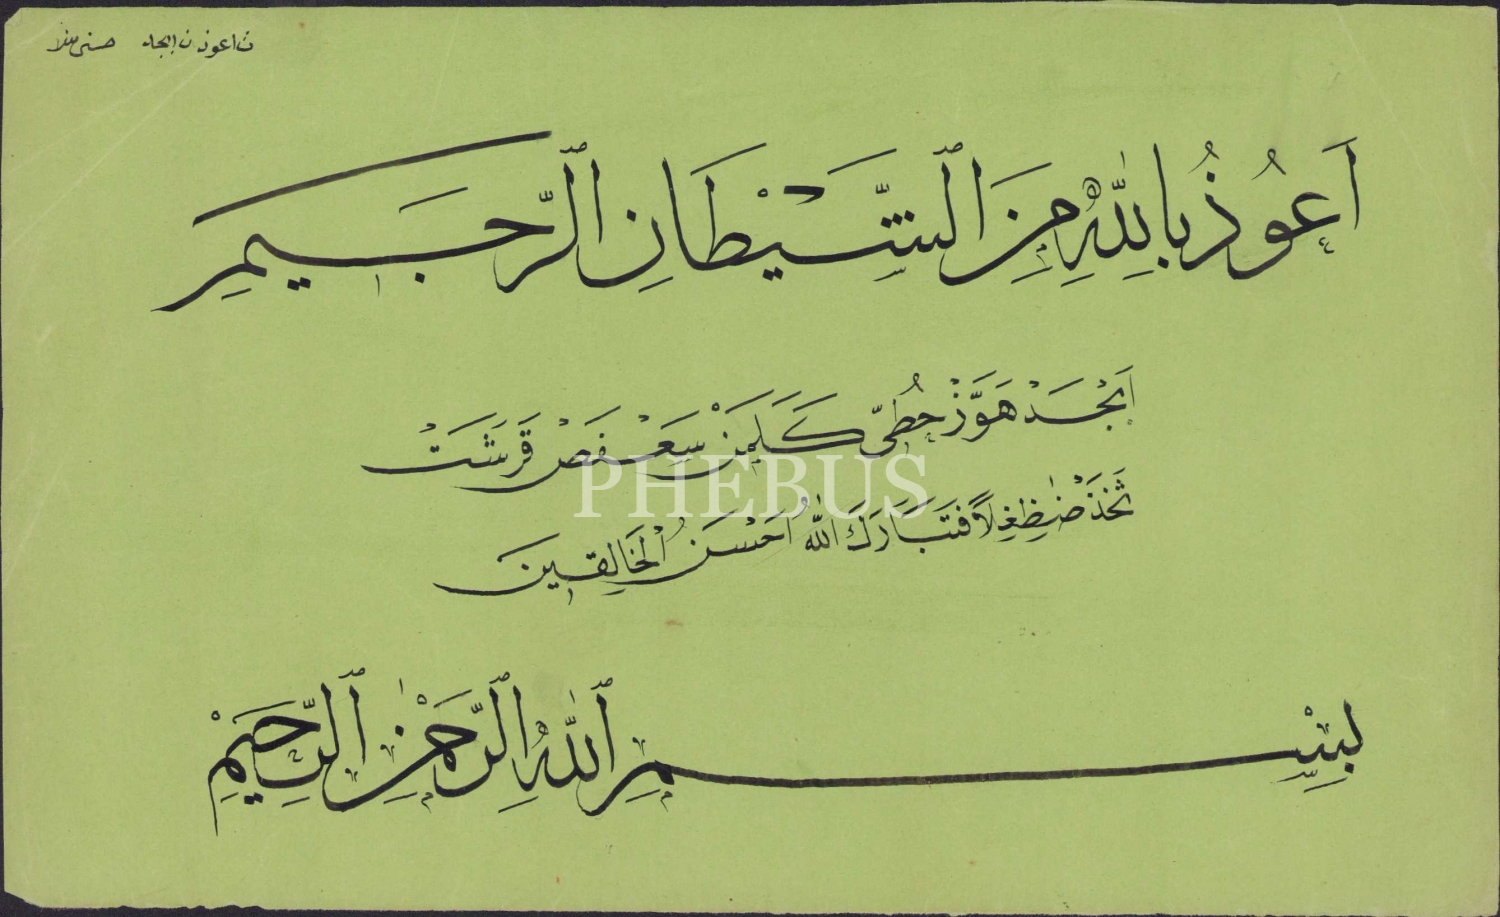 ن اعوذ ن ابجد حسنى
اَعُوذُ بِاللّٰهِ مِنَ الشَّيْطَانِ الرَّجَيمِ
اَبْجَدْ هَوَّزْ حُطِّى كَلَمَنْ سَعَفَصْ قَرَشَتْ
ثَخَذْ ضَظِغِلاً فَتَبَارَكَ اللّٰهُ اَحْسَنُ الْخَالِقِينَ
PHEBUS
بِسْمِ اللّٰهِ الرَّحْمٰنِ الرَّحِيمِ